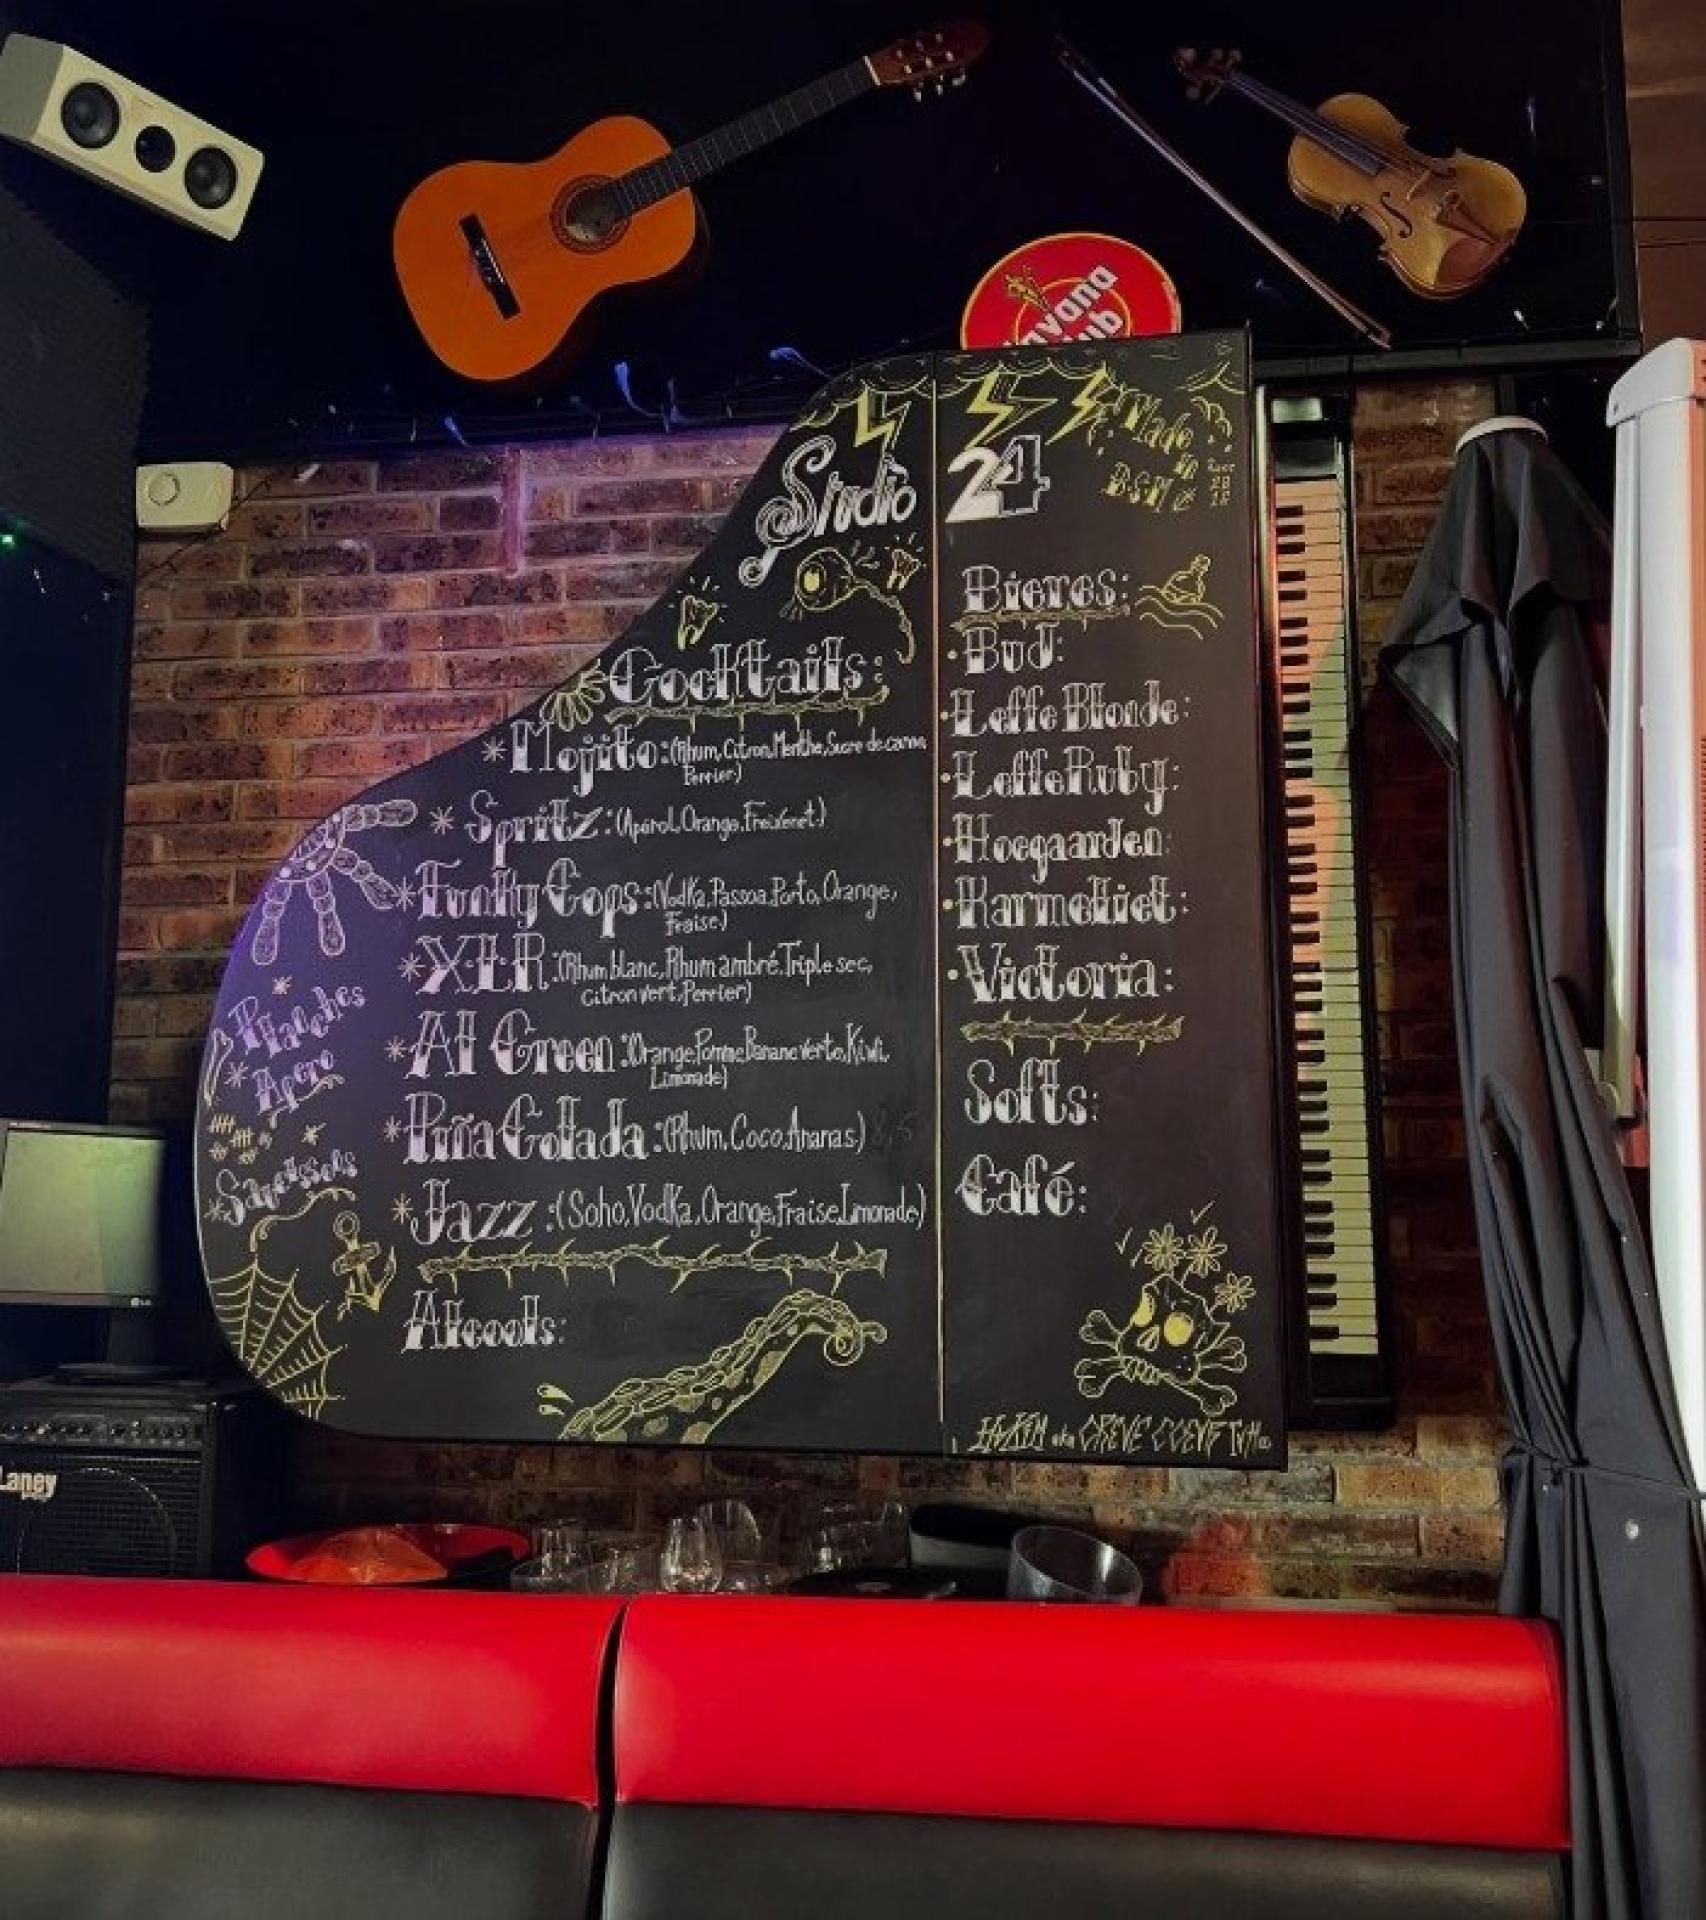 Studio 24
Made
in
B.S.M
Cocktails:
* Mojito: (Rhum, Citron, Menthe, Sucre de canne,
Perrier)
* Spritz: (Apérol, Orange, Freixenet)
* Funky Cops: (Vodka, Passoa, Porto, Orange,
Fraise)
* X.L.R: (Rhum blanc, Rhum ambré, Triple sec,
Citron vert, Perrier)
* Al Green: (Orange, Pomme, Banane verte, Kiwi,
Limonade)
* Piña Colada: (Rhum, Coco, Ananas)
* Jazz: (Soho, Vodka, Orange, Fraise, Limonade)
Alcools:
* Planches
* Apero
* Saucissons
Bieres:
• Bud:
• Leffe Blonde:
• Leffe Ruby:
• Hoegaarden:
• Karmeliet:
• Victoria:
Softs:
Café:
aka
Laney
LG